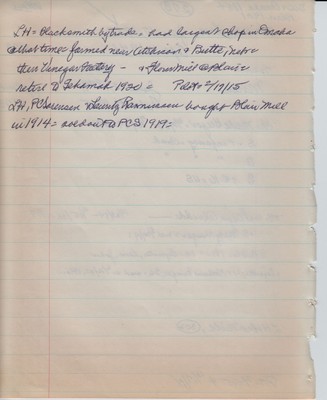 LH = Blacksmith by trade, had largest shop in Omaha
@ that time = farmed near Atkinson & Butte, Nebr =
then Vinegar Factory - & Flour Mill @ Blair =
retire to Tekamah 1930 = 2/19/15
LH, PC Sorensen & Rasmussen bought Blair Mill
in 1914 = sold out to PCS 1919 =